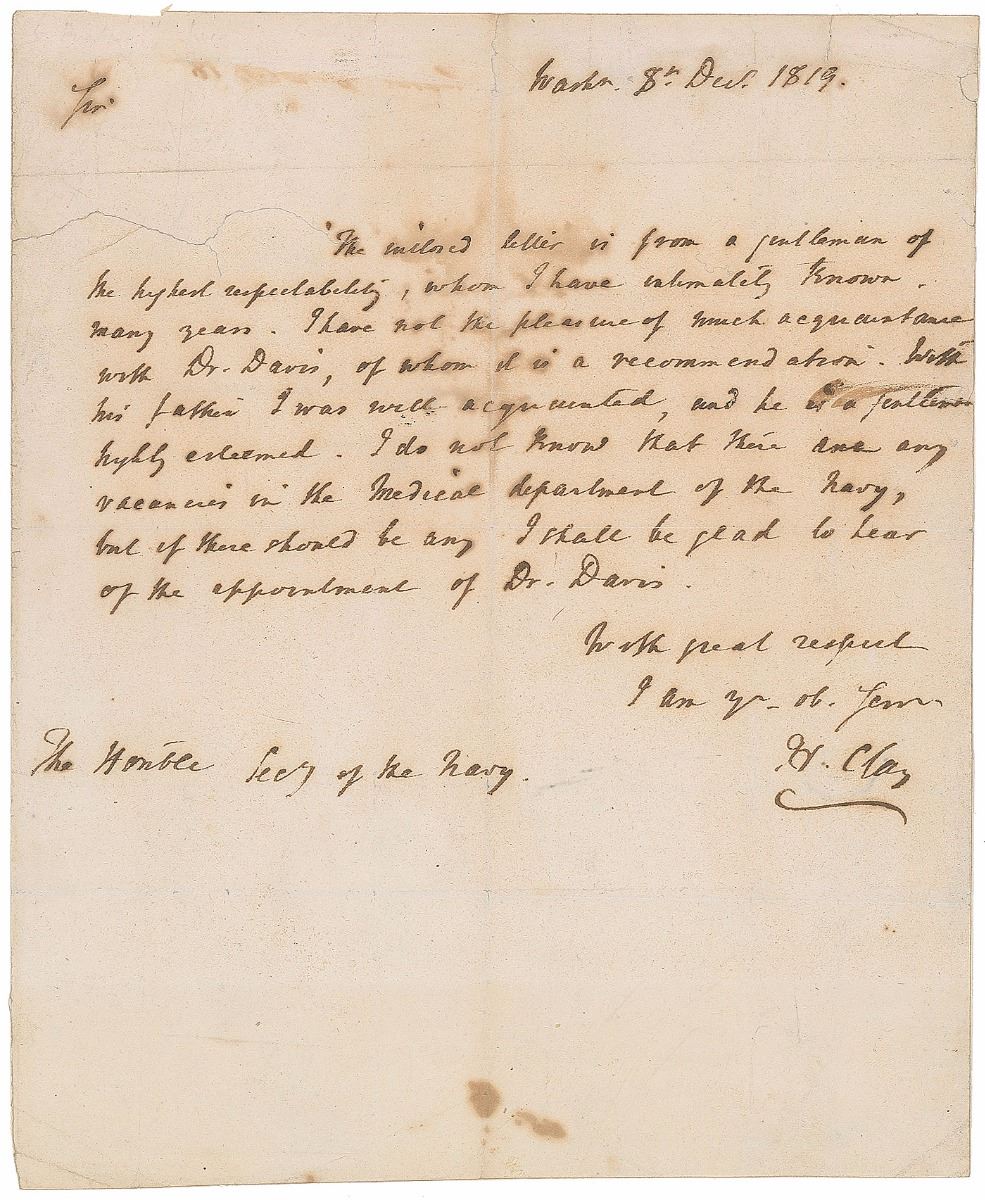 Washn. 8th Decr. 1819.
Sir
The inclosed letter is from a gentleman of
the highest respectability, whom I have intimately known
many years. I have not the pleasure of much acquaintance
with Dr. Davis, of whom it is a recommendation. With
his father I was well acquainted, and he is a gentleman
highly esteemed. I do not know that there are any
vacancies in the Medical department of the Navy,
but if there should be any I shall be glad to hear
of the appointment of Dr. Davis.
With great respect
I am yr. ob. Serv.
H. Clay
The Honble Secy of the Navy.